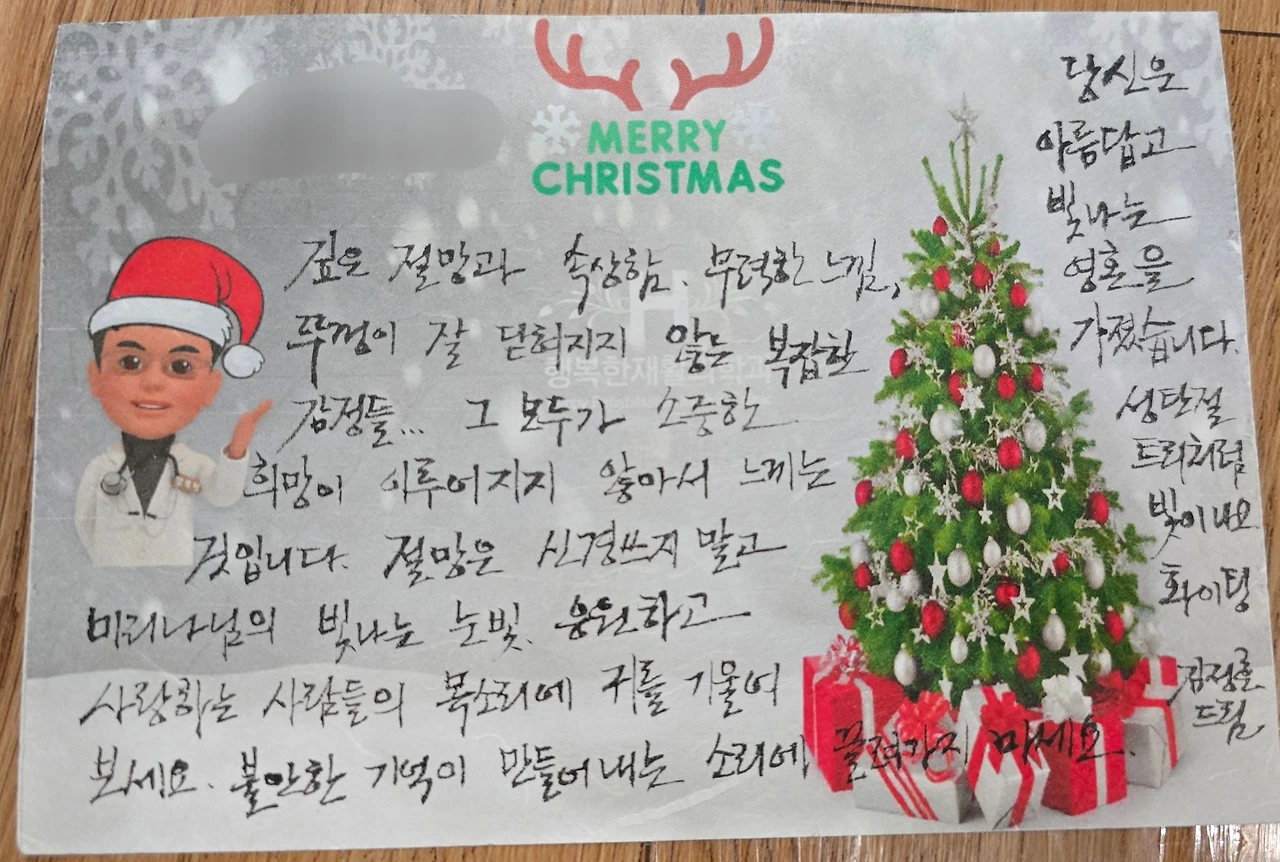 MERRY
CHRISTMAS
깊은 절망과 속상함. 무력한 느낌,
뚜껑이 잘 닫혀지지 않는 복잡한
감정들... 그 모두가 소중한
희망이 이루어지지 않아서 느끼는
것입니다. 절망은 신경쓰지 말고
미리나님의 빛나는 눈빛. 응원하고
사랑하는 사람들의 목소리에 귀를 기울여
보세요. 불안한 기억이 만들어내는 소리에 끌려가지 마세요.
당신은
아름답고
빛나는
영혼을
가졌습니다.
성탄절
트리처럼
빛이나요
화이팅
드림
행복한재활의학과